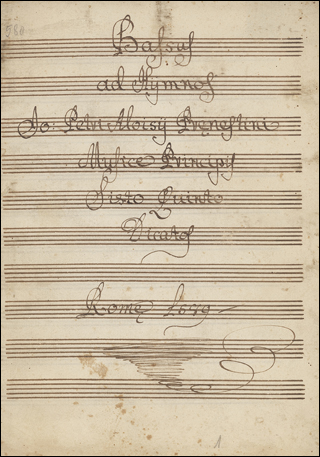 Bassus
ad Hymnos
Jo. Petri Aloisÿ Pręnestini
Musice Principis
Sixto Quinto
Dicatos
Romę
1